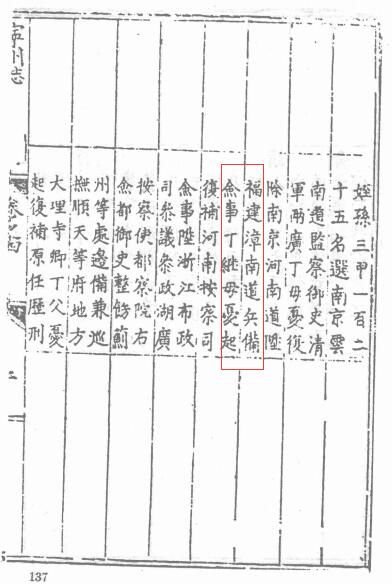 姪孫三甲一百二
十五名選南京雲
南道監察御史清
軍兩廣丁母憂復
除南京河南道陞
福建漳南道兵備
僉事丁繼母憂起
復補河南按察司
僉事陞浙江布政
司參議參政湖廣
按察使都察院右
僉都御史整飭薊
州等處邊備兼巡
撫順天等府地方
大理寺卿丁父憂
起復補原任歷刑
寧州志
卷之四
137